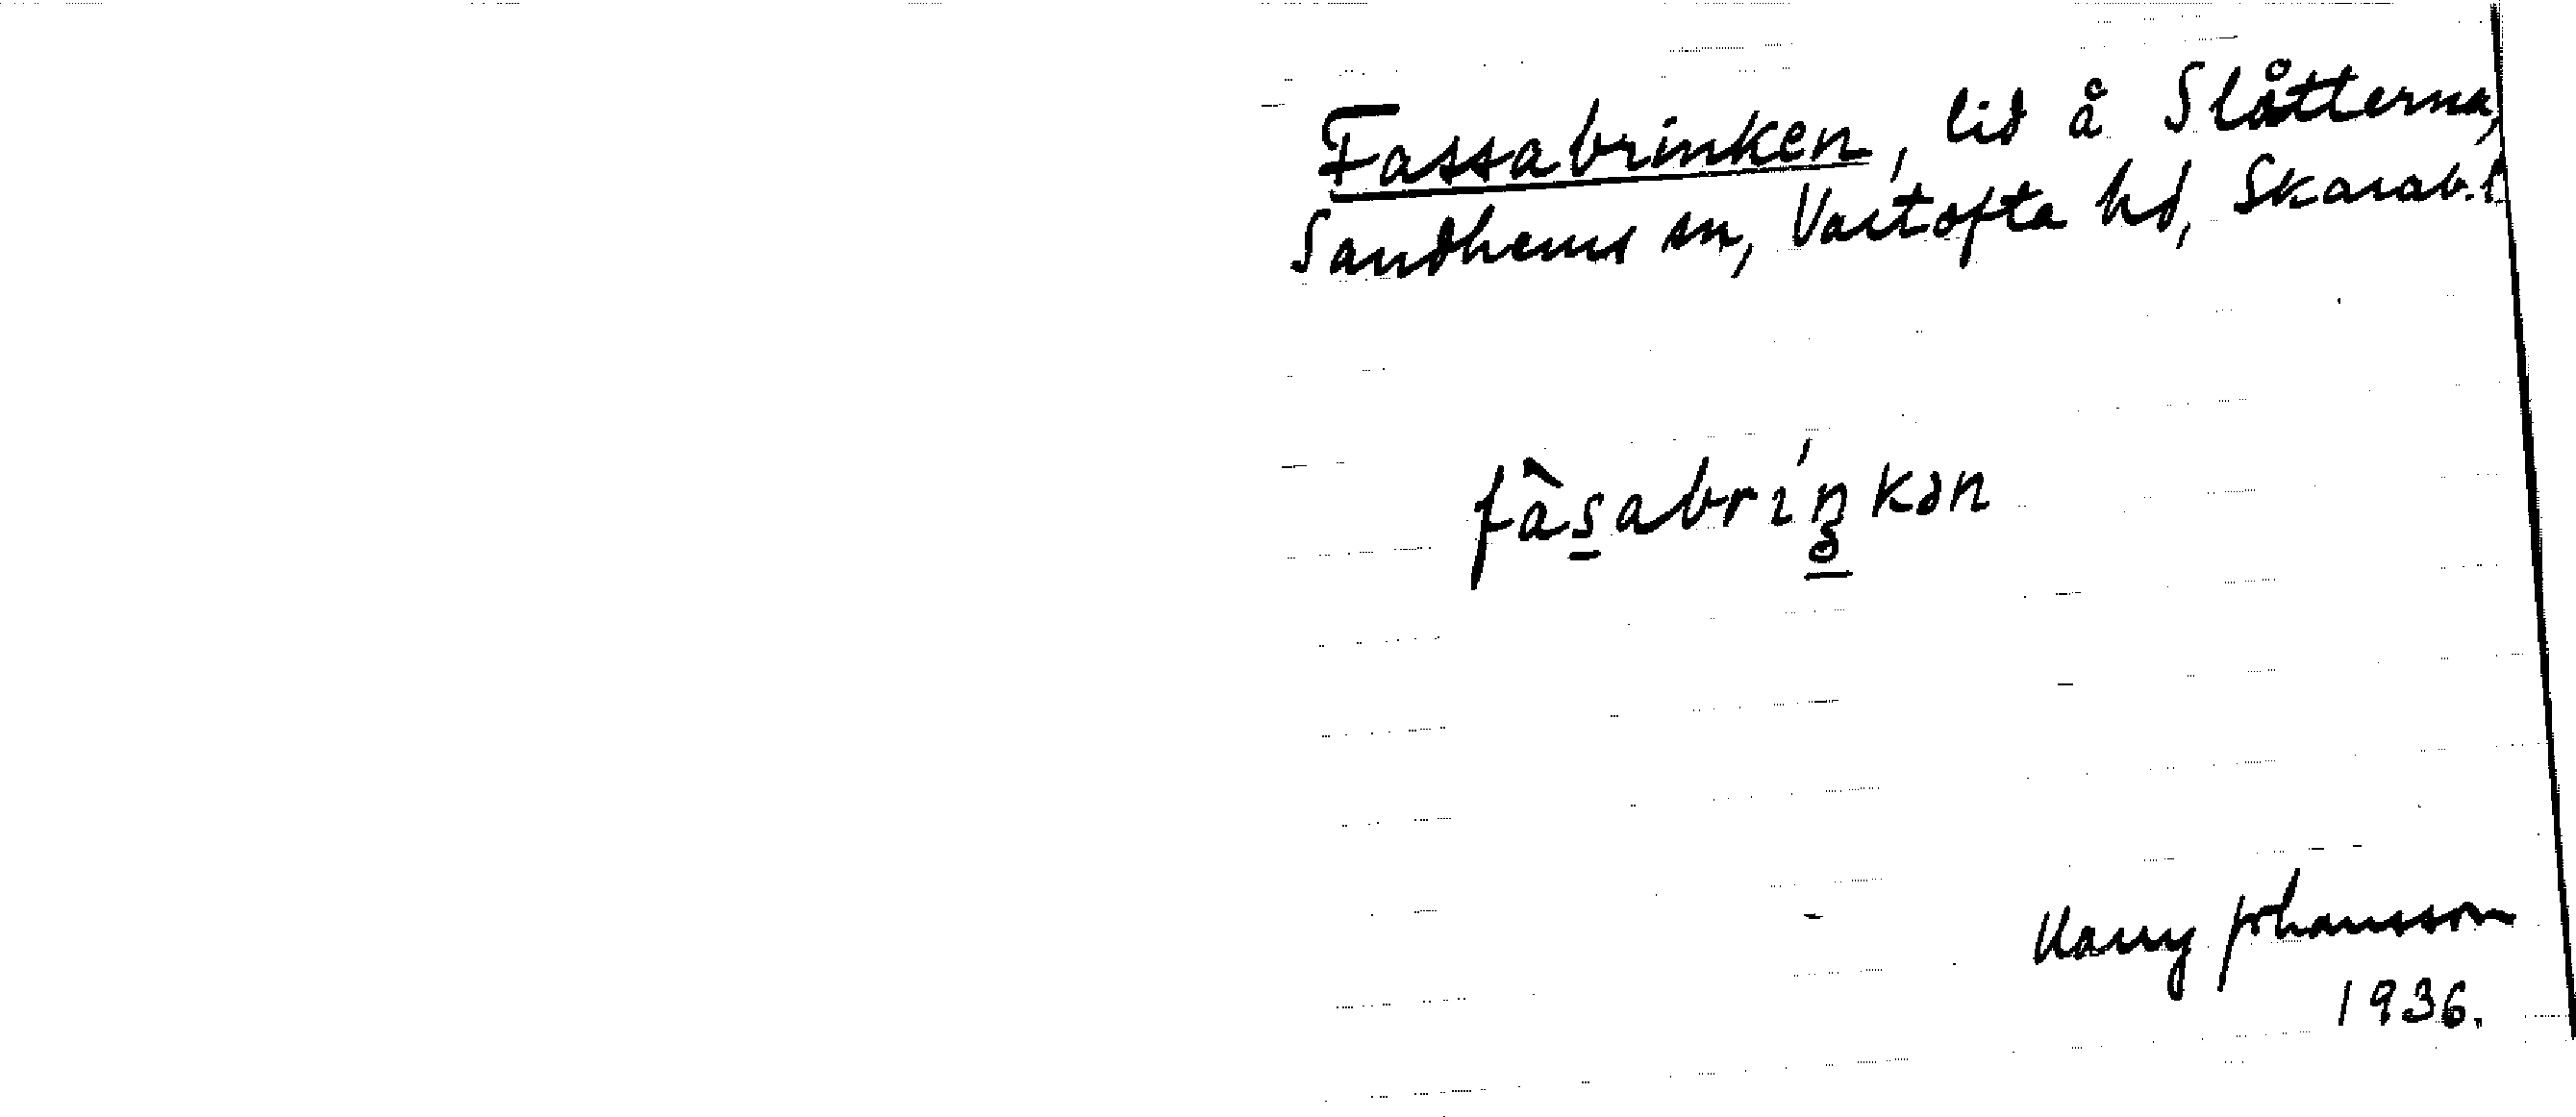 Fassabrinken, lid å Slåtterna,
Sandhems sn, Vartofta hd, Skarab.l
fàsabríŋkən
Harry Johansson
1936.